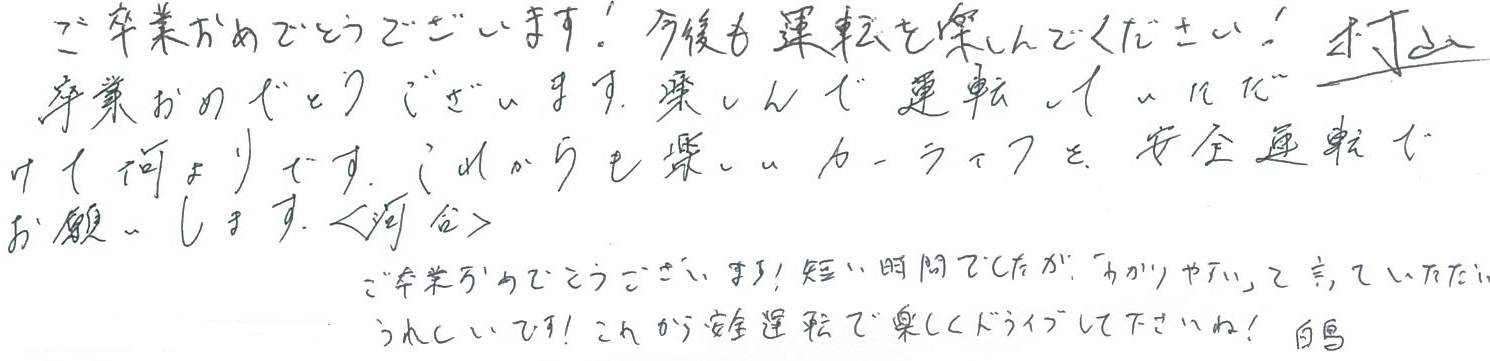 ご卒業おめでとうございます！今後も運転を楽しんでください！ 村山
卒業おめでとうございます。楽しんで運転していただ
けて何よりです。これからも楽しいカーライフを、安全運転で
お願いします。<河合>
ご卒業おめでとうございます！短い時間でしたが、「わかりやすい」って言っていただい
うれしいです！これから安全運転で楽しくドライブして下さいね！ 白鳥